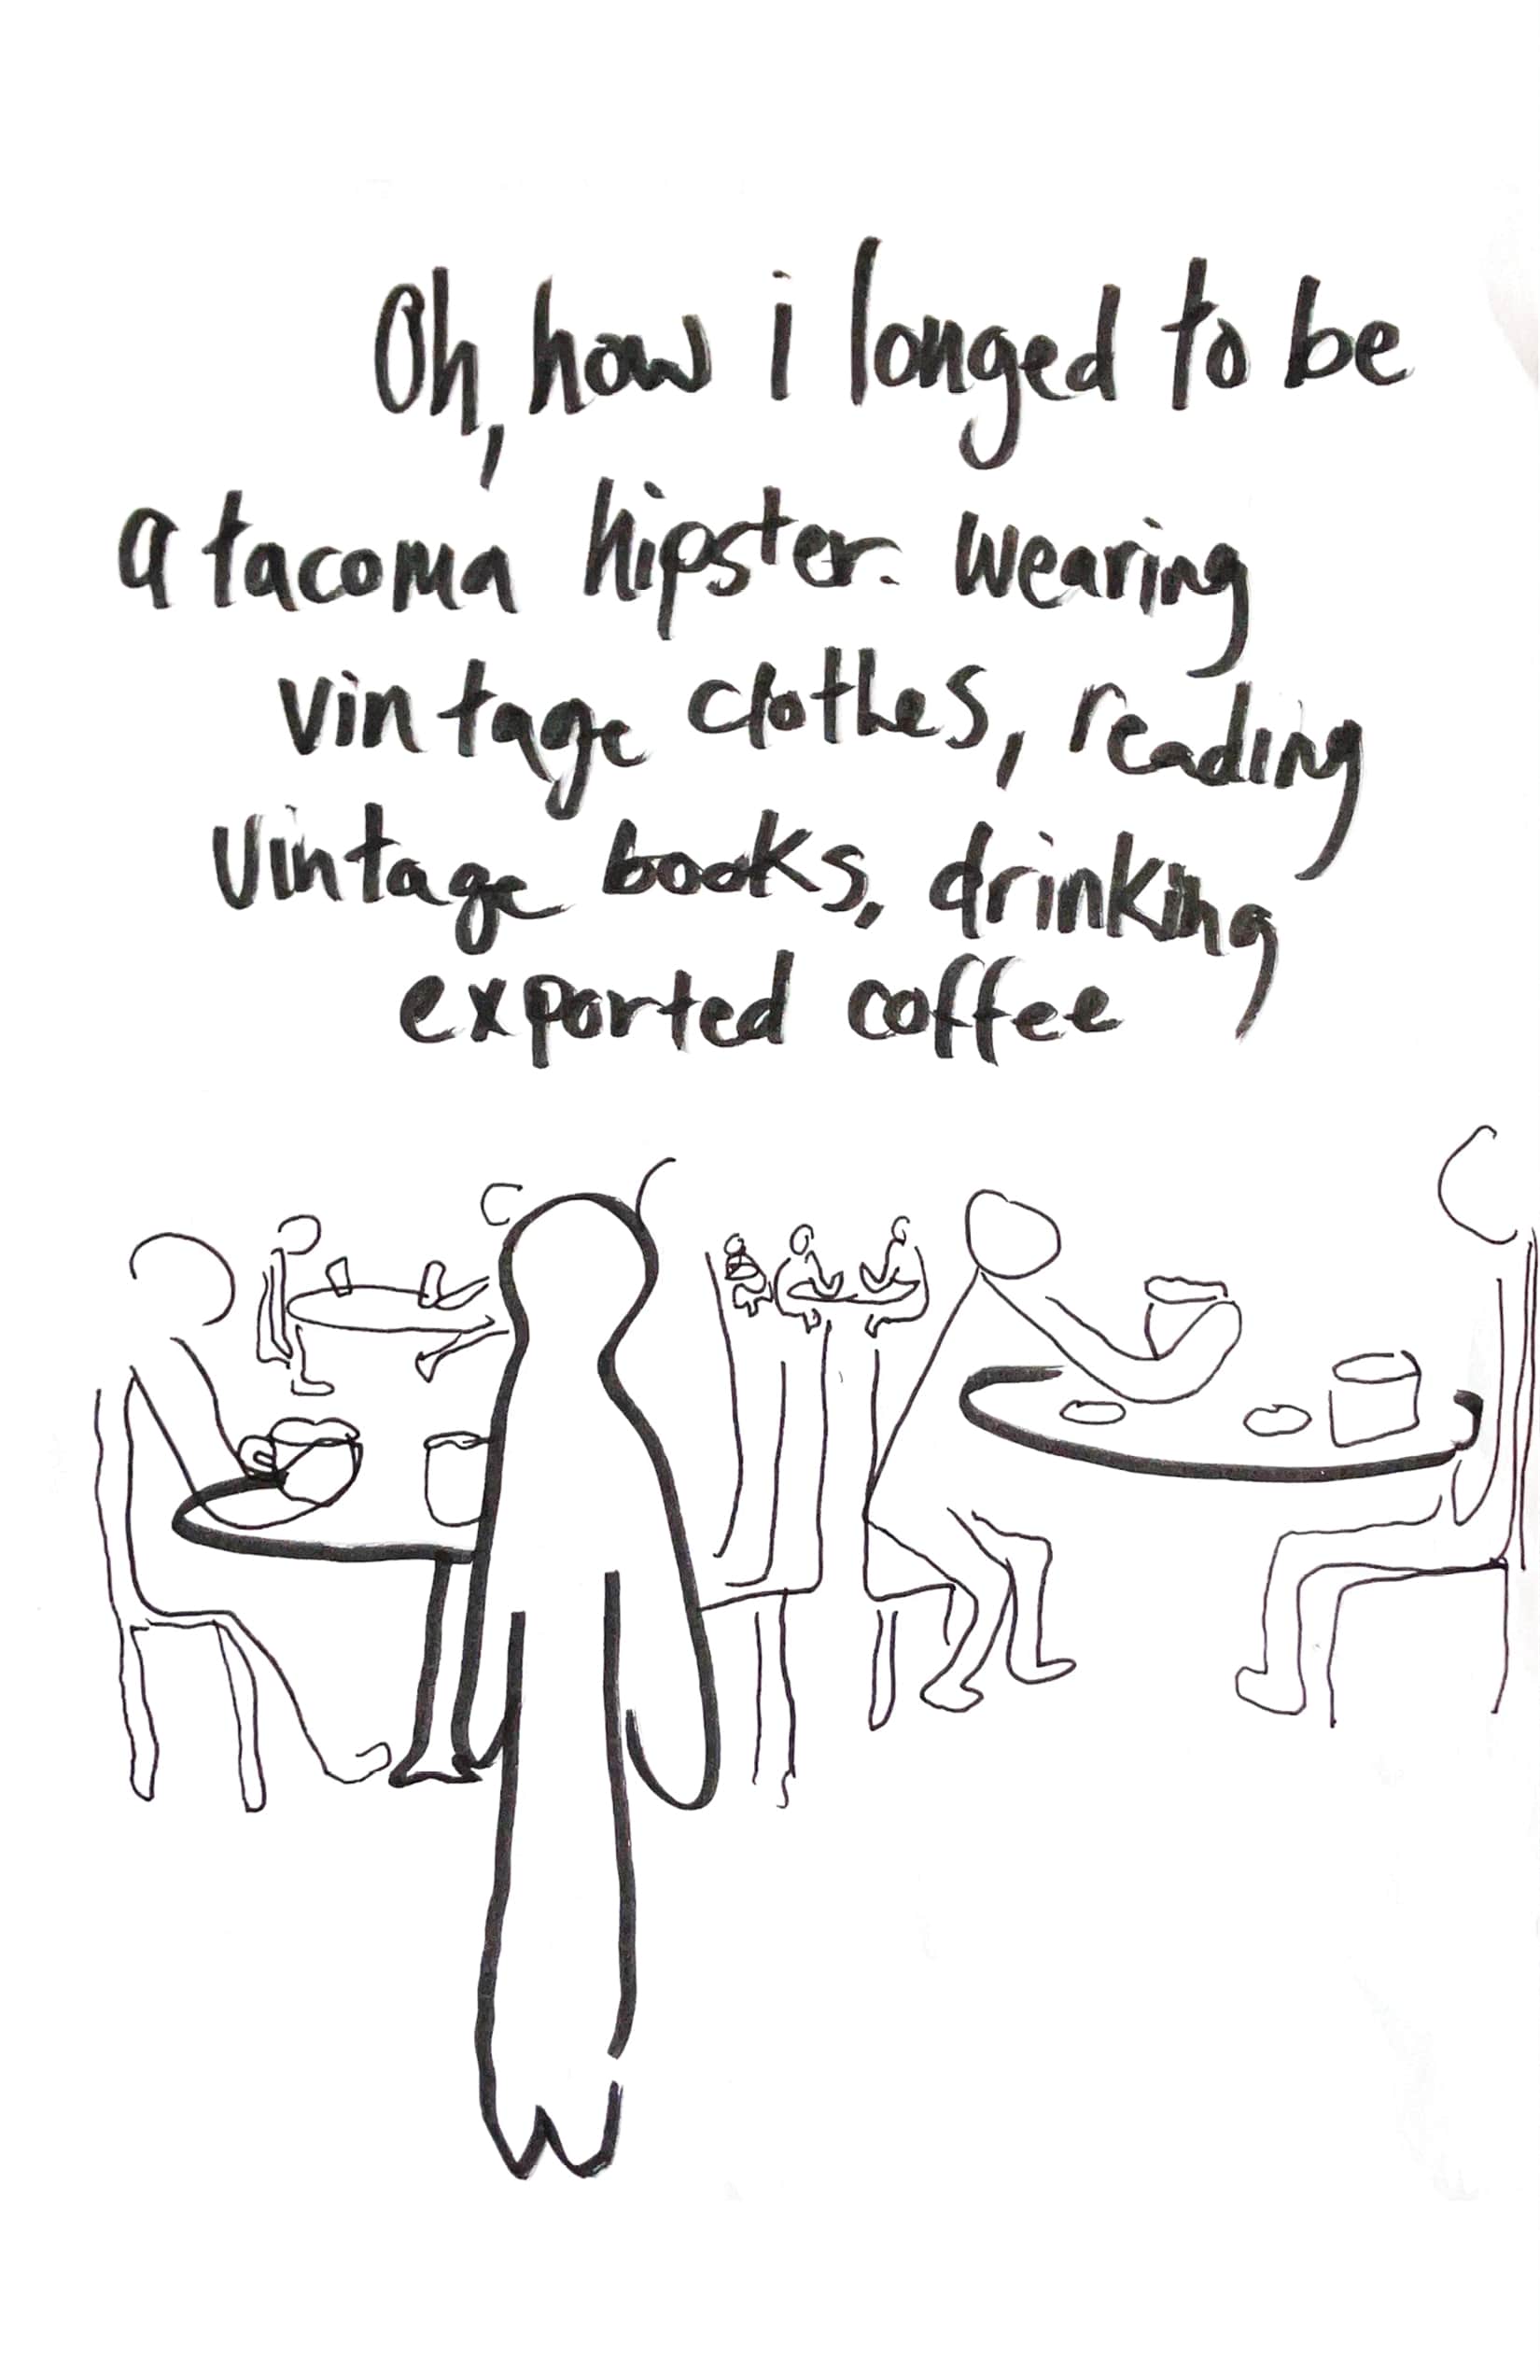 Oh, how i longed to be
a tacoma hipster. wearing
vintage clothes, reading
vintage books, drinking
exported coffee